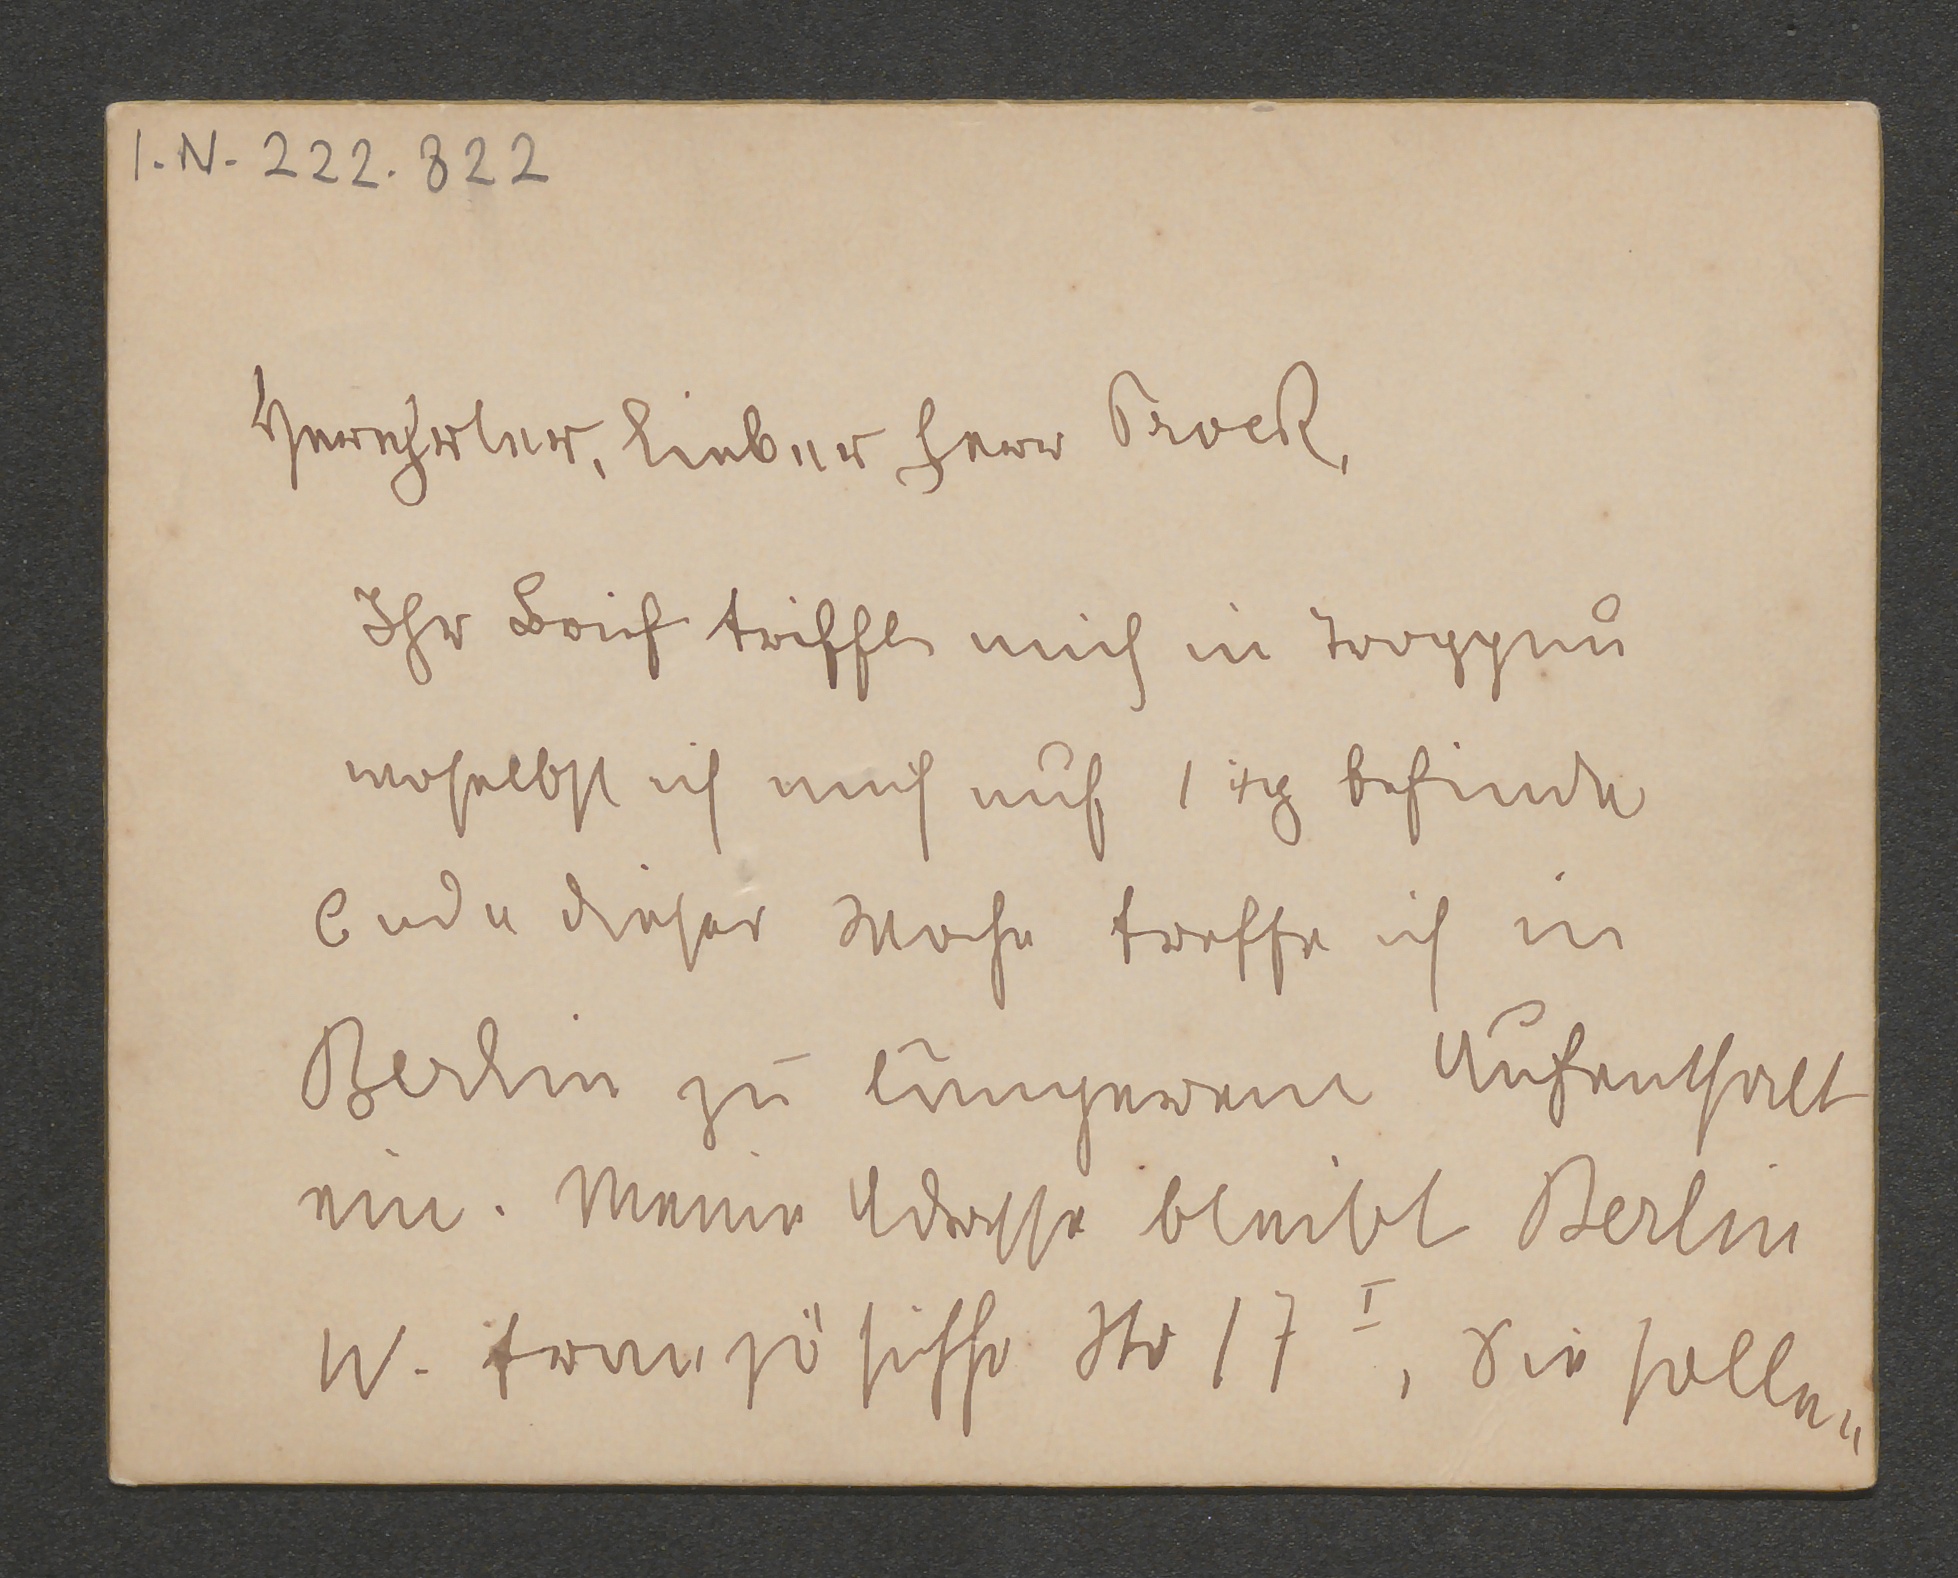 I.N. 222.822
Verehrter, lieber Herr Prock,
Ihr Brief trifft mich in Troppau
woselbst ich mich auf 1 Tg befinde
Ende dieser Woche treffe ich in
Berlin zu längerem Aufenthalt
ein. Meine Adresse bleibt Berlin
W. französische Str 17 I, Sie sollen